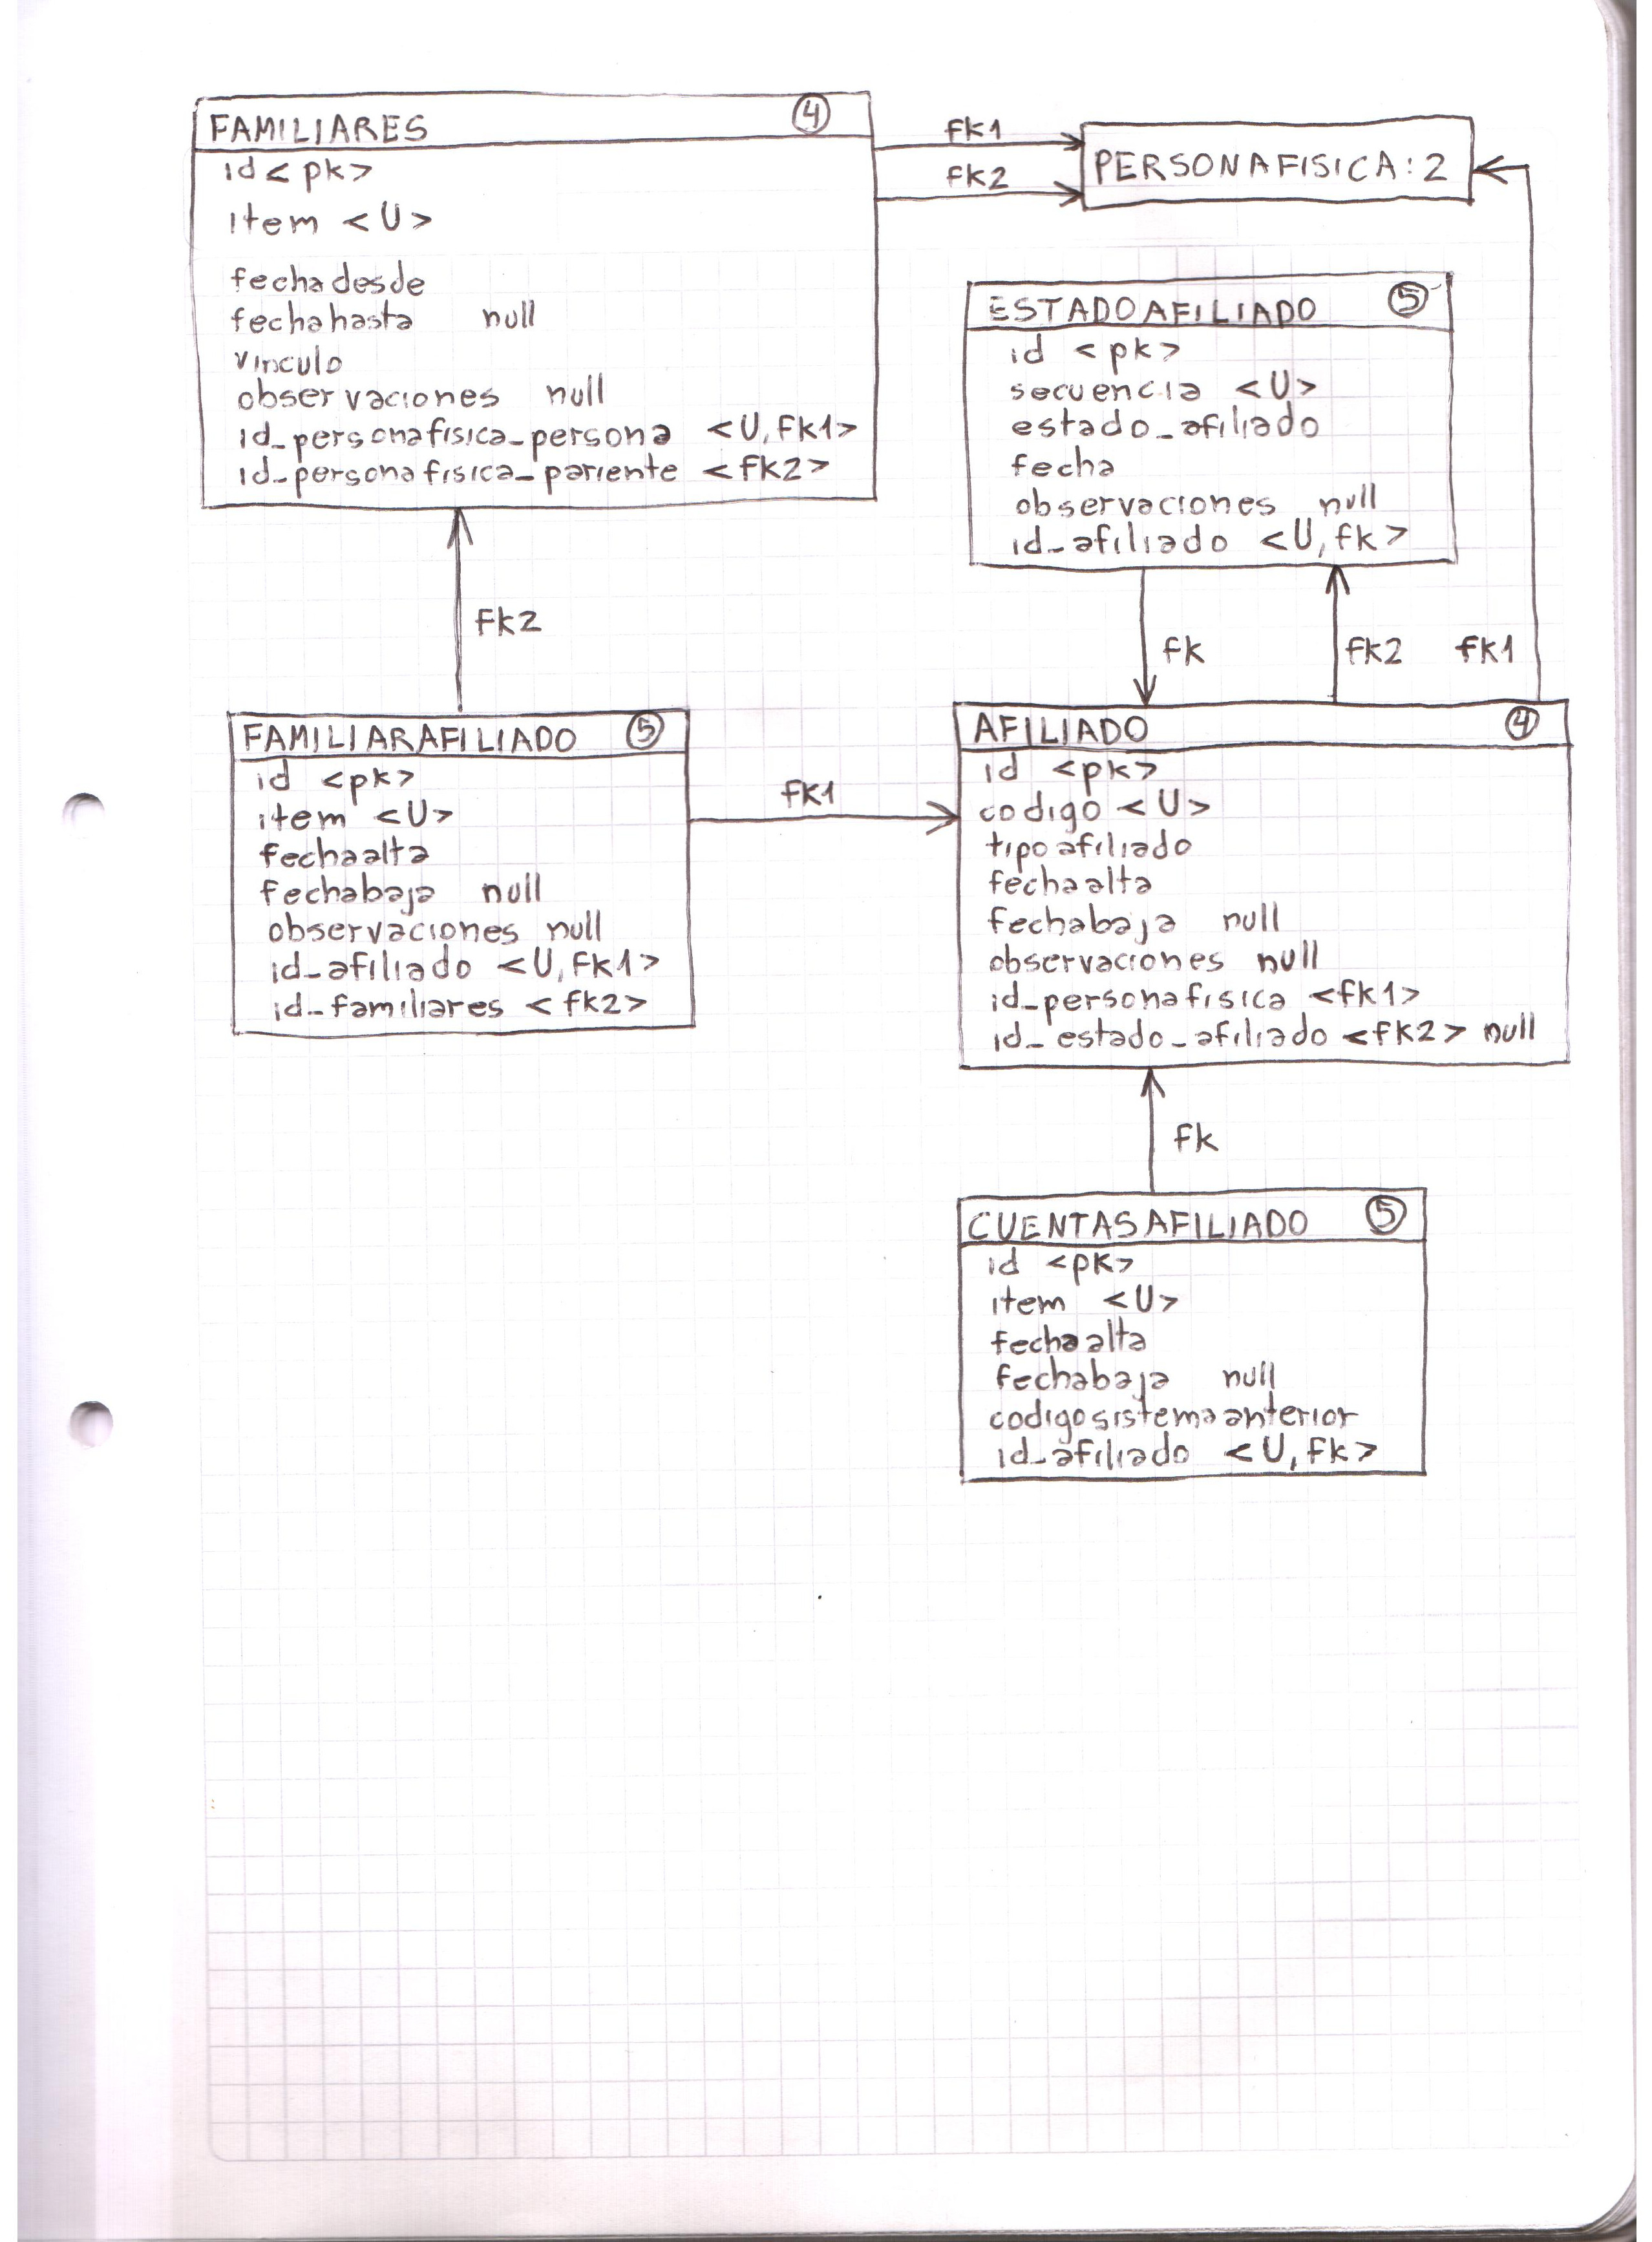 FAMILIARES 4
id <pk>
item <U>
fechadesde
fechahasta null
vinculo
observaciones null
id_personafisica_persona <U,fk1>
id_personafisica_pariente <fk2>
fk1
fk2
PERSONAFISICA:2
ESTADOAFILIADO 5
id <pk>
secuencia <U>
estado_afiliado
fecha
observaciones null
id_afiliado <U,fk>
fk2
fk
fk2
fk1
FAMILIARAFILIADO 5
id <pk>
item <U>
fechaalta
fechabaja null
observaciones null
id_afiliado <U,fk1>
id_familiares <fk2>
fk1
AFILIADO 4
id <pk>
codigo <U>
tipoafiliado
fechaalta
fechabaja null
observaciones null
id_personafisica <fk1>
id_estado_afiliado <fk2> null
fk
CUENTASAFILIADO 5
id <pk>
item <U>
fechaalta
fechabaja null
codigosistemaanterior
id_afiliado <U,fk>